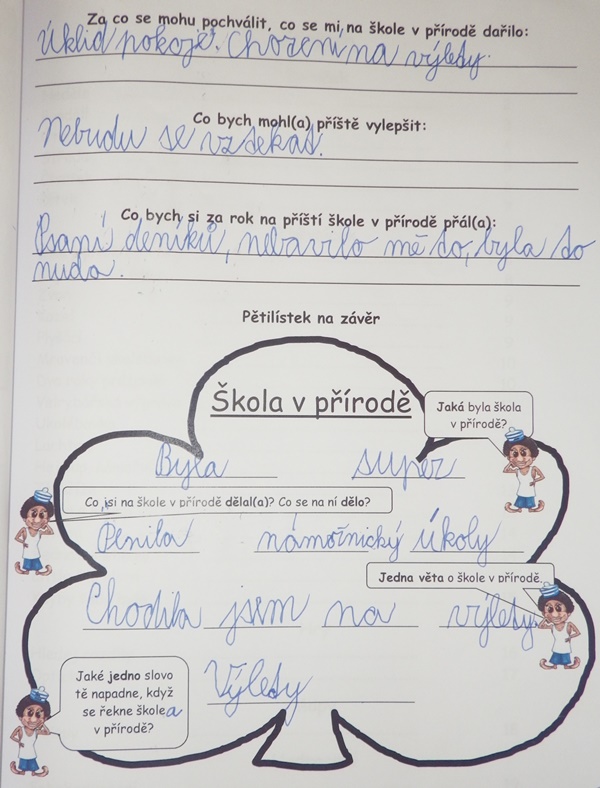 Za co se mohu pochválit, co se mi na škole v přírodě dařilo:
Úklid pokoje. Chození na výlety.
Co bych mohl(a) příště vylepšit:
Nebudu se vztekat.
Co bych si za rok na příští škole v přírodě přál(a):
Psaní deníků, nebavilo mě to, byla to
nuda.
Pětilístek na závěr
Škola v přírodě
Jaká byla škola
v přírodě?
Byla super
Co jsi na škole v přírodě dělal(a)? Co se na ní dělo?
Plnila námořnický úkoly
Jedna věta o škole v přírodě.
Chodila jsem na výlety.
Jaké jedno slovo
tě napadne, když
se řekne škola
v přírodě?
Výlety